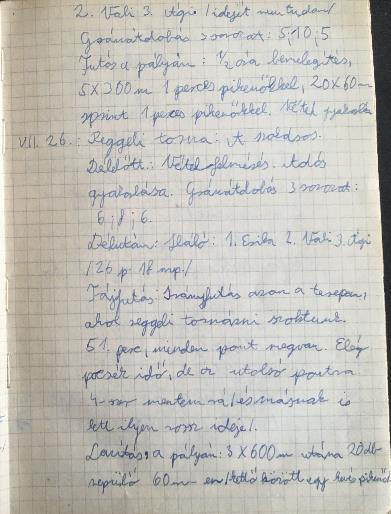 2. Vali 3. Ági /idejét nem tudom/
Gránátdobás 3 sorozat: 5; 10; 5
Futás a pályán: 1/2 óra bemelegítés,
5X300 m 1 perces pihenőkkel, 20X60 m
sprint 1 perces pihenőkkel. Vétel gyakorlás
VII. 26. Reggeli torna: A szokásos.
Délelőtt: Vétel felmérés. Adás
gyakorlása. Gránátdobás 3 sorozat:
6; 8; 6.
Délután: Háló: 1. Csilla 2. Vali 3. Ági
/26 p. 18 mp./
Tájfutás: Irányfutás azon a terepen,
ahol reggeli tornázni szoktunk.
51. perc, minden pont megvan. Elég
pocsék idő, de az utolsó pontra
4-szer mentem rá /és másnak is
lett ilyen rossz ideje/.
a pályán: 3 X 600 m utána 20 db
repülő 60 m-en /kettő között egy kevés pihenő